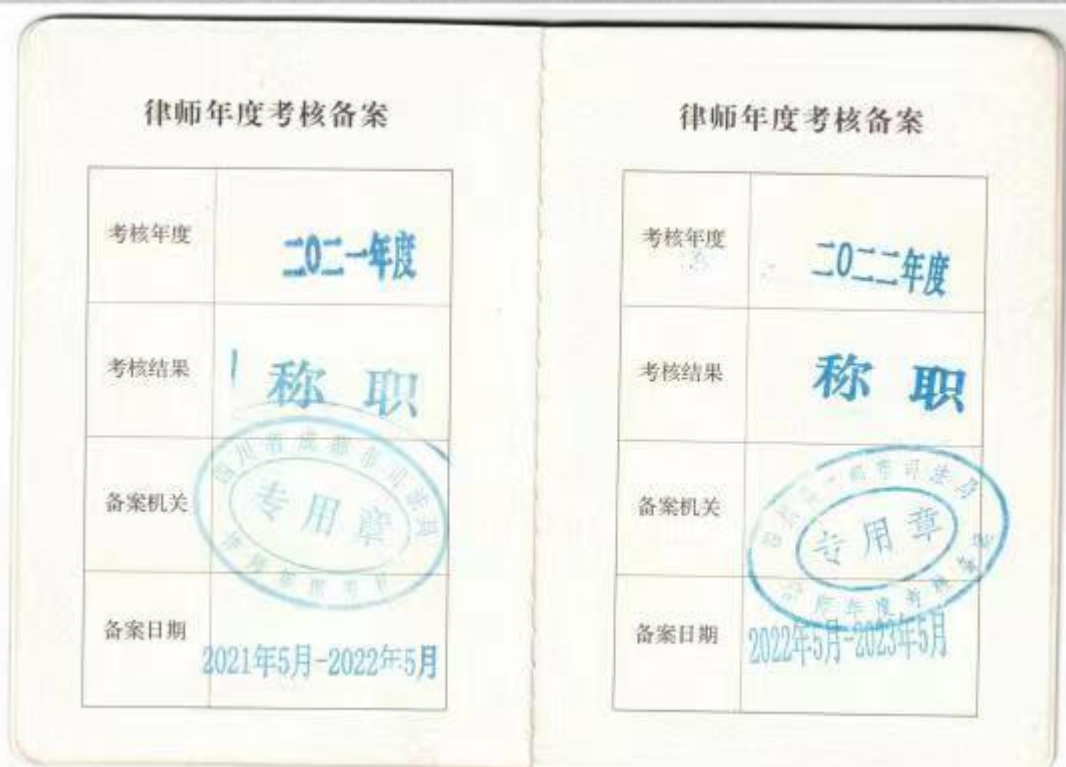 律师年度考核备案
考核年度
二〇二一年度
考核结果
称 职
备案机关
四川省成都市司法局
专用章
备案日期
2021年5月-2022年5月
律师年度考核备案
考核年度
二〇二二年度
考核结果
称 职
备案机关
市司法局
专用章
律师年度考核
备案日期
2022年5月-2023年5月